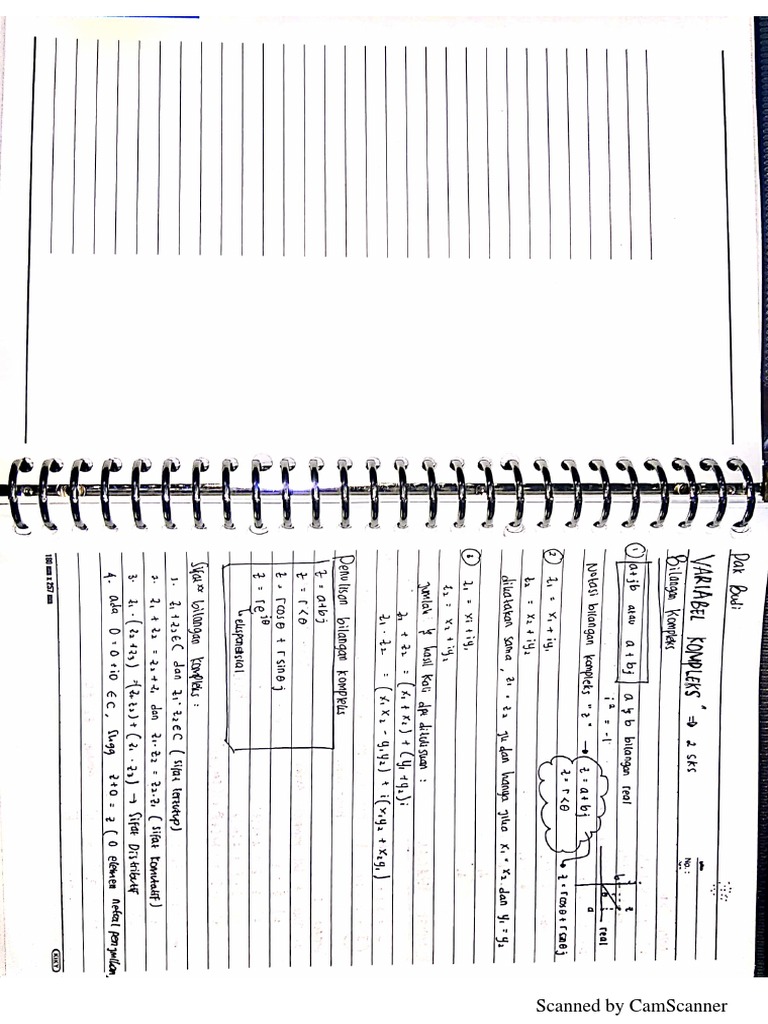 Pak Budi
No.:
VARIABEL KOMPLEKS" ⇒ 2 sks
Bilangan Kompleks
① a+jb atau a+bj a & b bilangan real
i² = -1
Notasi bilangan kompleks "z" → z = a+bj
z = r<θ
z = r cos θ + r sin θ j
b
θ
z
a
real
② z₁ = x₁ + iy₁
z₂ = x₂ + iy₂
dikatakan sama, z₁ = z₂ jika dan hanya jika x₁ = x₂ dan y₁ = y₂
③ z₁ = x₁ + iy₁
z₂ = x₂ + iy₂
jumlah & hasil kali dpt dituliskan :
z₁ + z₂ = (x₁ + x₂) + (y₁ + y₂)i
z₁ · z₂ = (x₁x₂ - y₁y₂) + i(x₁y₂ + x₂y₁)
Penulisan bilangan kompleks
z = a+bj
z = r<θ
z = r cos θ + r sin θ j
z = re^jθ
↳ eksponensial
Sifat² bilangan kompleks :
1. z₁+z₂ ∈ C dan z₁·z₂ ∈ C (sifat tertutup)
2. z₁ + z₂ = z₂ + z₁ dan z₁·z₂ = z₂·z₁ (sifat komutatif)
3. z₁·(z₂+z₃) = (z₁z₂) + (z₁·z₃) → Sifat Distributif
4. ada 0 = 0 + i0 ∈ C, sehingga z+0 = z (0 elemen netral penjumlahan
180 mm x 257 mm
KIKY
Scanned by CamScanner